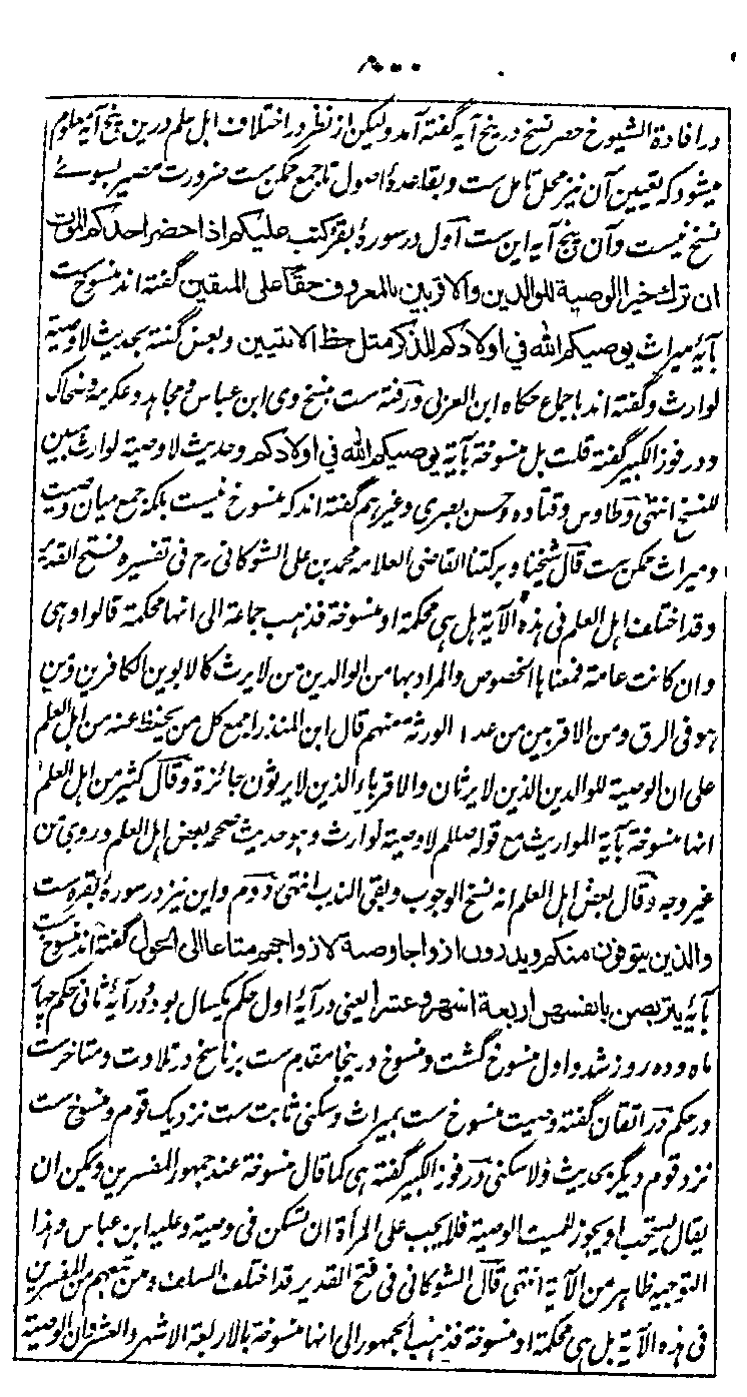 در افادة الشیوخ حصر نسخ در پنج آیه گفته آمد ولیکن از نظر در اختلاف اهل علم درین پنج آیه معلوم
میشود که تعیین آن نیز محل تامل ست و بقاعدۀ اصول تا جمع ممکن ست ضرورت مصیر بسوے
نسخ نیست وآن پنج آیه این ست اول در سورۀ بقره کتب علیکم اذا حضر احدکم الموت
ان ترك خیرا الوصیة للوالدین والاقربین بالمعروف حقا علی المتقین گفته اند منسوخ ست
بآیۀ میراث یوصیکم الله فی اولادکم للذکر مثل حظ الانثیین وبعض گفته بحدیث لا وصیة
لوارث وگفته اند باجماع حکاه ابن العربی ورفته ست بنسخ وی ابن عباس ومجاهد وعکرمه وضحاک
ودر فوز الکبیر گفته قلت بل منسوخة بآیة یوصیکم الله فی اولادکم وحدیث لا وصیة لوارث مبین
للنسخ انتهی وطاوس وقتاده وحسن بصری وغیرهم گفته اند که منسوخ نیست بلکه جمع میان وصیت
ومیراث ممکن ست قال شیخنا وبرکتنا القاضی العلامه محمد بن علی الشوکانی رح فی تفسیره فتح القدیر
وقد اختلف اهل العلم فی هذه الآیة هل هی محکمة او منسوخة فذهب جماعة الی انها محکمة قالوا وهی
وان کانت عامة فمعناها الخصوص والمراد بها من الوالدین من لا یرث کالابوین الکافرین ومن
هو فی الرق ومن الاقربین من عدا الورثة منهم قال ابن المنذر اجمع کل من یحفظ عنه من اهل العلم
علی ان الوصیة للوالدین الذین لا یرثان والاقرباء الذین لا یرثون جائزة وقال کثیر من اهل العلم
انها منسوخة بآیة المواریث مع قوله صللم لا وصیة لوارث وهو حدیث صححه بعض اهل العلم وروی من
غیر وجه وقال بعض اهل العلم انه نسخ الوجوب وبقی الندب انتهی دوم واین نیز در سورۀ بقره ست
والذین یتوفون منکم ویذرون ازواجا وصیة لازواجهم متاعا الی الحول گفته اند منسوخ ست
بآیۀ یتربصن بانفسهن اربعة اشهر وعشرا یعنی در آیۀ اول حکم یکسال بود ودر آیۀ ثانی حکم چهار
ماه وده روز شد واول منسوخ گشت ومنسوخ درینجا مقدم ست بر ناسخ در تلاوت ومتاخر ست
در حکم در اتقان گفته وصیت منسوخ ست بمیراث وسکنی ثابت ست نزدیک قوم ومنسوخ ست
نزد قوم دیگر بحدیث ولا سکنی در فوز الکبیر گفته هی کما قال منسوخة عند جمهور المفسرین ویمکن ان
یقال یستحب او یجوز للمیت الوصیة فلا یجب علی المرأة ان تسکن فی وصیة وعلیه ابن عباس وهذا
التوجیه ظاهر من الآیة انتهی قال الشوکانی فی فتح القدیر قد اختلف السلف ومن تبعهم من المفسرین
فی هذه الآیة هل هی محکمة او منسوخة فذهب الجمهور الی انها منسوخة بالاربعة الاشهر والعشر وان الوصیة